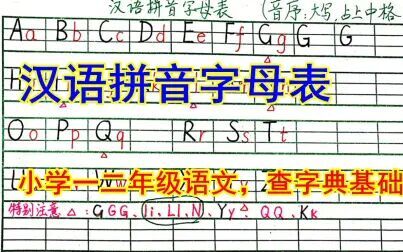 汉语拼音字母表 (音序:大写,占上中格
Aa Bb Cc Dd Ee Ff Gg G G
H
汉语拼音字母表
Oo Pp Qq Rr Ss Tt
小学一二年级语文，查字典基础
特别注意 △: GGG、Ii、Ll、N、Yy、QQ、Kk